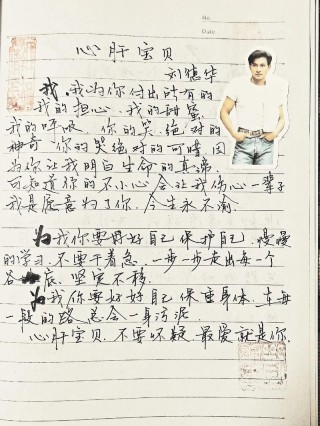 No.
Date
心肝宝贝
刘德华
我,我为你付出所有的
我的担心,我的甜蜜
我的呼吸,你的笑绝对的
神奇 你的哭绝对的可惜,因
为你让我明白生命的真谛.
可知道你的不小心会让我伤心一辈子
我是愿意为了你,今生永不渝.
为我你要好好自己保护自己,慢慢
的学习,不要干着急,一步一步走出每一个
谷底,坚定不移.
为我你要好好自己保重身体,在每
一段的路 总会一身污泥.
心肝宝贝,不要怀疑,最爱就是你.